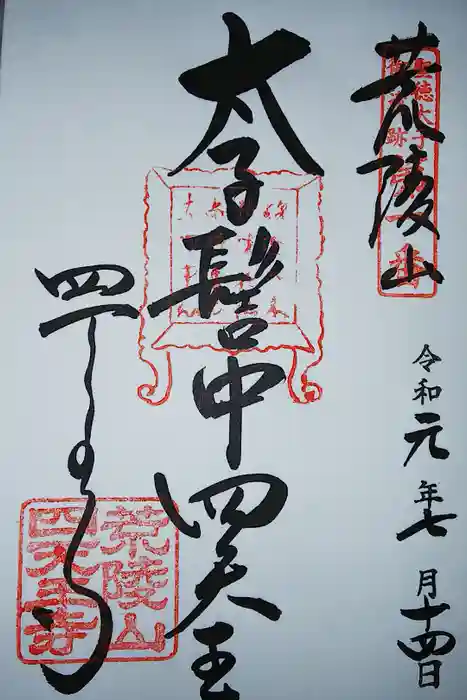 荒陵山
聖徳太子
跡
一番
令和元年七月十四日
太子髻中四天王
四天王寺
荒陵山
四天王寺